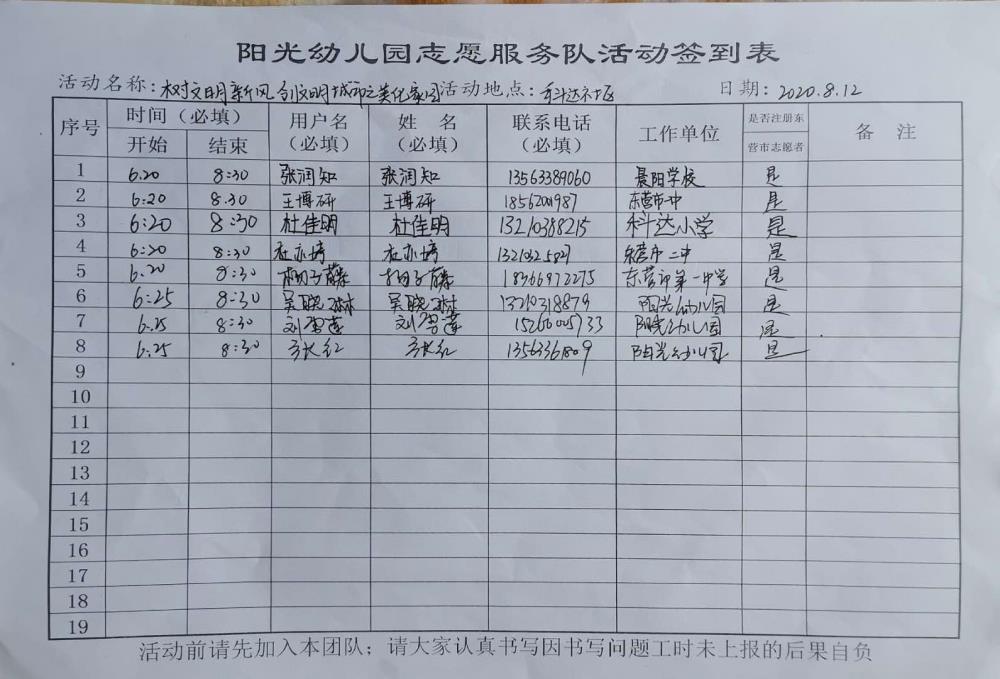 阳光幼儿园志愿服务队活动签到表
活动名称：树文明新风 创文明城市之美化家园 活动地点：科达社区 日期：2020.8.12
序号 时间（必填） 用户名（必填） 姓 名（必填） 联系电话（必填） 工作单位 是否注册东营市志愿者 备 注
开始 结束
1 6:20 8:30 张润知 张润知 13563389060 晨阳学校 是
2 6:20 8:30 王博研 王博研 18562001987 东营市一中 是
3 6:20 8:30 杜佳明 杜佳明 13210388215 科达小学 是
4 6:20 8:30 杜亦 杜亦 东营市二中 是
5 6:20 8:30 杨子藤 杨子藤 18366972275 东营市第一中学 是
6 6:25 8:30 吴晓琳 吴晓琳 13210318879 阳光幼儿园 是
7 6:25 8:30 刘 莲 刘 莲 阳光幼儿园 是
8 6:25 8:30 长红 长红 13563361809 阳光幼儿园 是
9
10
11
12
13
14
15
16
17
18
19
活动前请先加入本团队；请大家认真书写因书写问题工时未上报的后果自负